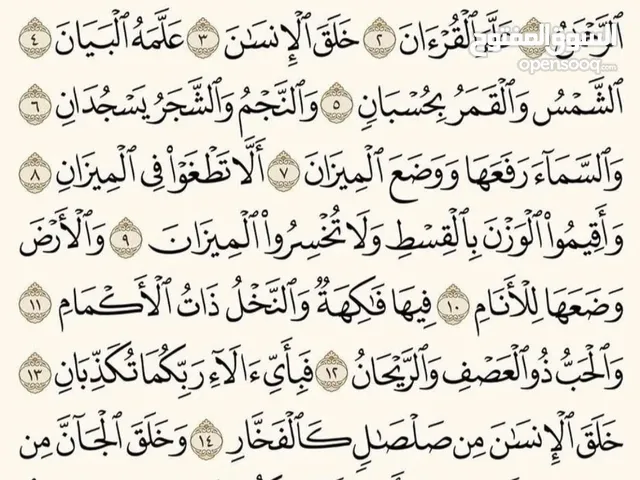 ٱلرَّحْمَٰنُ ١ عَلَّمَ ٱلْقُرْءَانَ ٢ خَلَقَ ٱلْإِنسَٰنَ ٣ عَلَّمَهُ ٱلْبَيَانَ ٤
السوق المفتوح
opensooq.com
ٱلشَّمْسُ وَٱلْقَمَرُ بِحُسْبَانٍ ٥ وَٱلنَّجْمُ وَٱلشَّجَرُ يَسْجُدَانِ ٦
وَٱلسَّمَآءَ رَفَعَهَا وَوَضَعَ ٱلْمِيزَانَ ٧ أَلَّا تَطْغَوْا۟ فِى ٱلْمِيزَانِ ٨
وَأَقِيمُوا۟ ٱلْوَزْنَ بِٱلْقِسْطِ وَلَا تُخْسِرُوا۟ ٱلْمِيزَانَ ٩ وَٱلْأَرْضَ
وَضَعَهَا لِلْأَنَامِ ١٠ فِيهَا فَٰكِهَةٌ وَٱلنَّخْلُ ذَاتُ ٱلْأَكْمَامِ ١١
وَٱلْحَبُّ ذُو ٱلْعَصْفِ وَٱلرَّيْحَانُ ١٢ فَبِأَىِّ ءَالَآءِ رَبِّكُمَا تُكَذِّبَانِ ١٣
خَلَقَ ٱلْإِنسَٰنَ مِن صَلْصَٰلٍ كَٱلْفَخَّارِ ١٤ وَخَلَقَ ٱلْجَآنَّ مِن